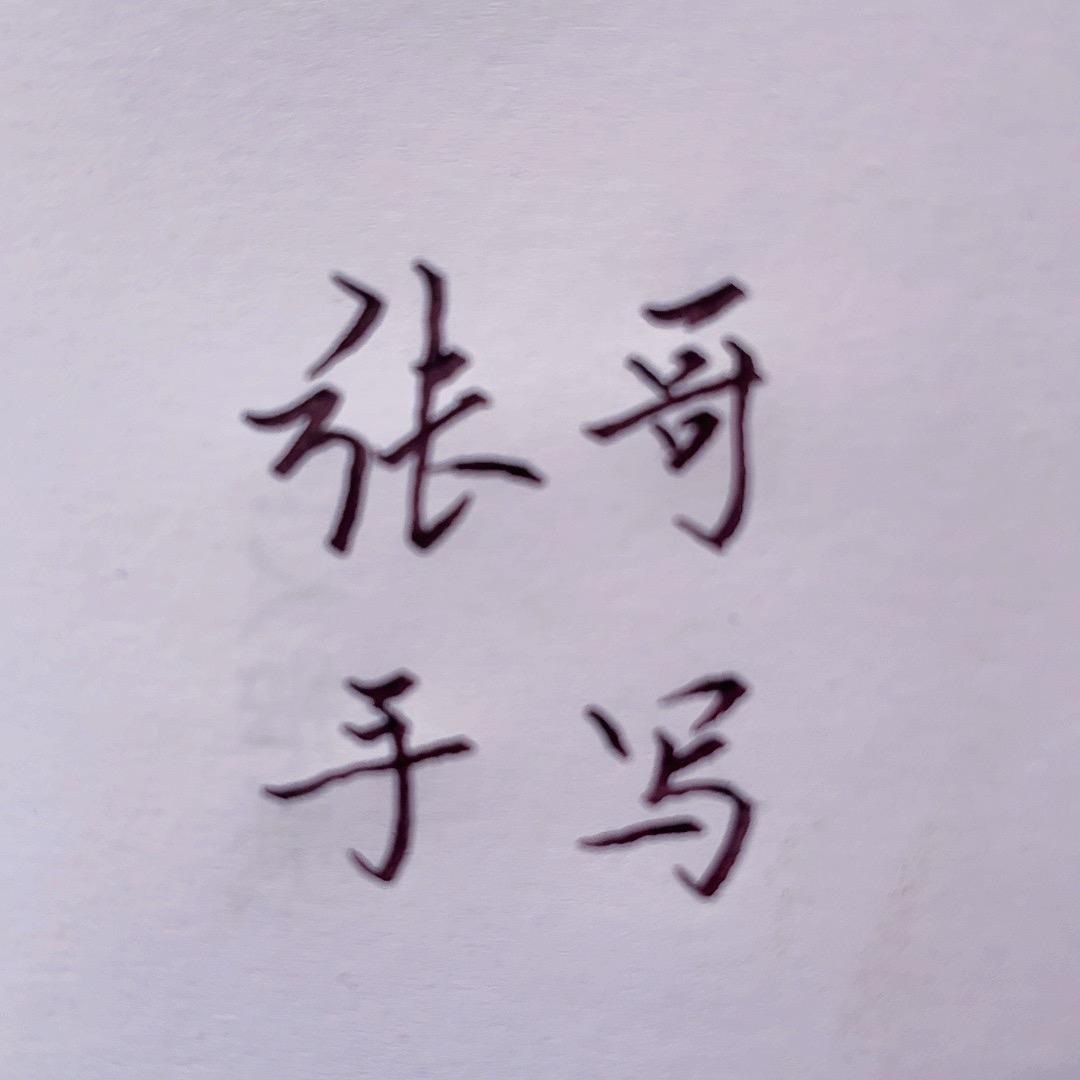 张哥
手写